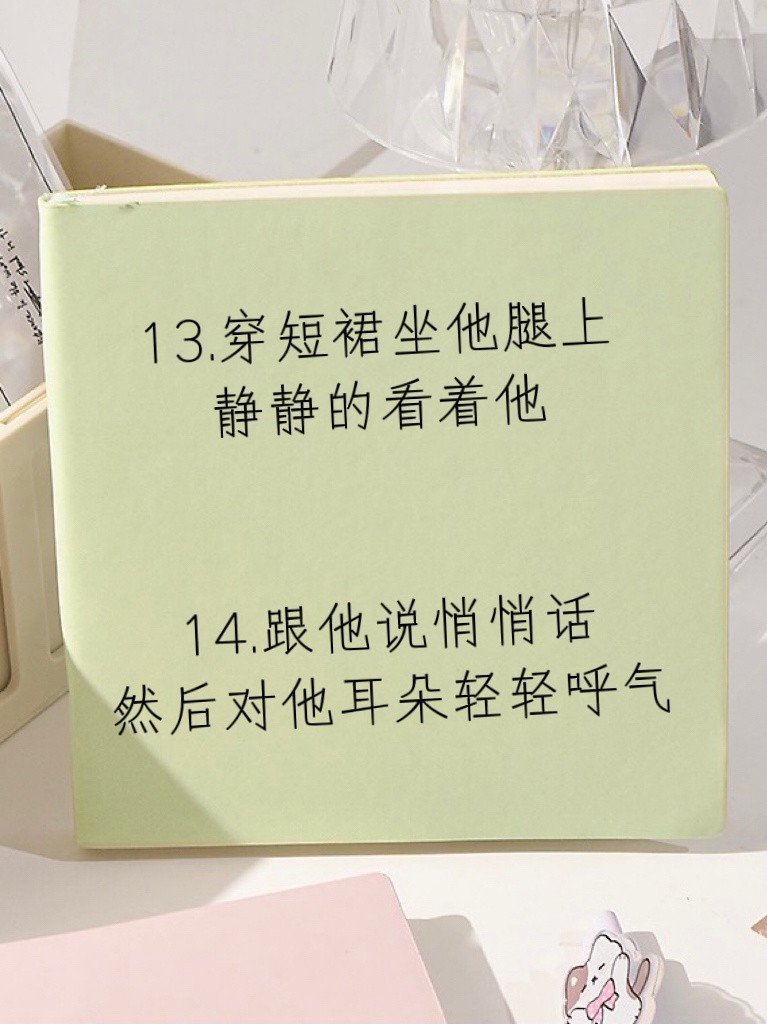 13.穿短裙坐他腿上
静静的看着他
14.跟他说悄悄话
然后对他耳朵轻轻呼气